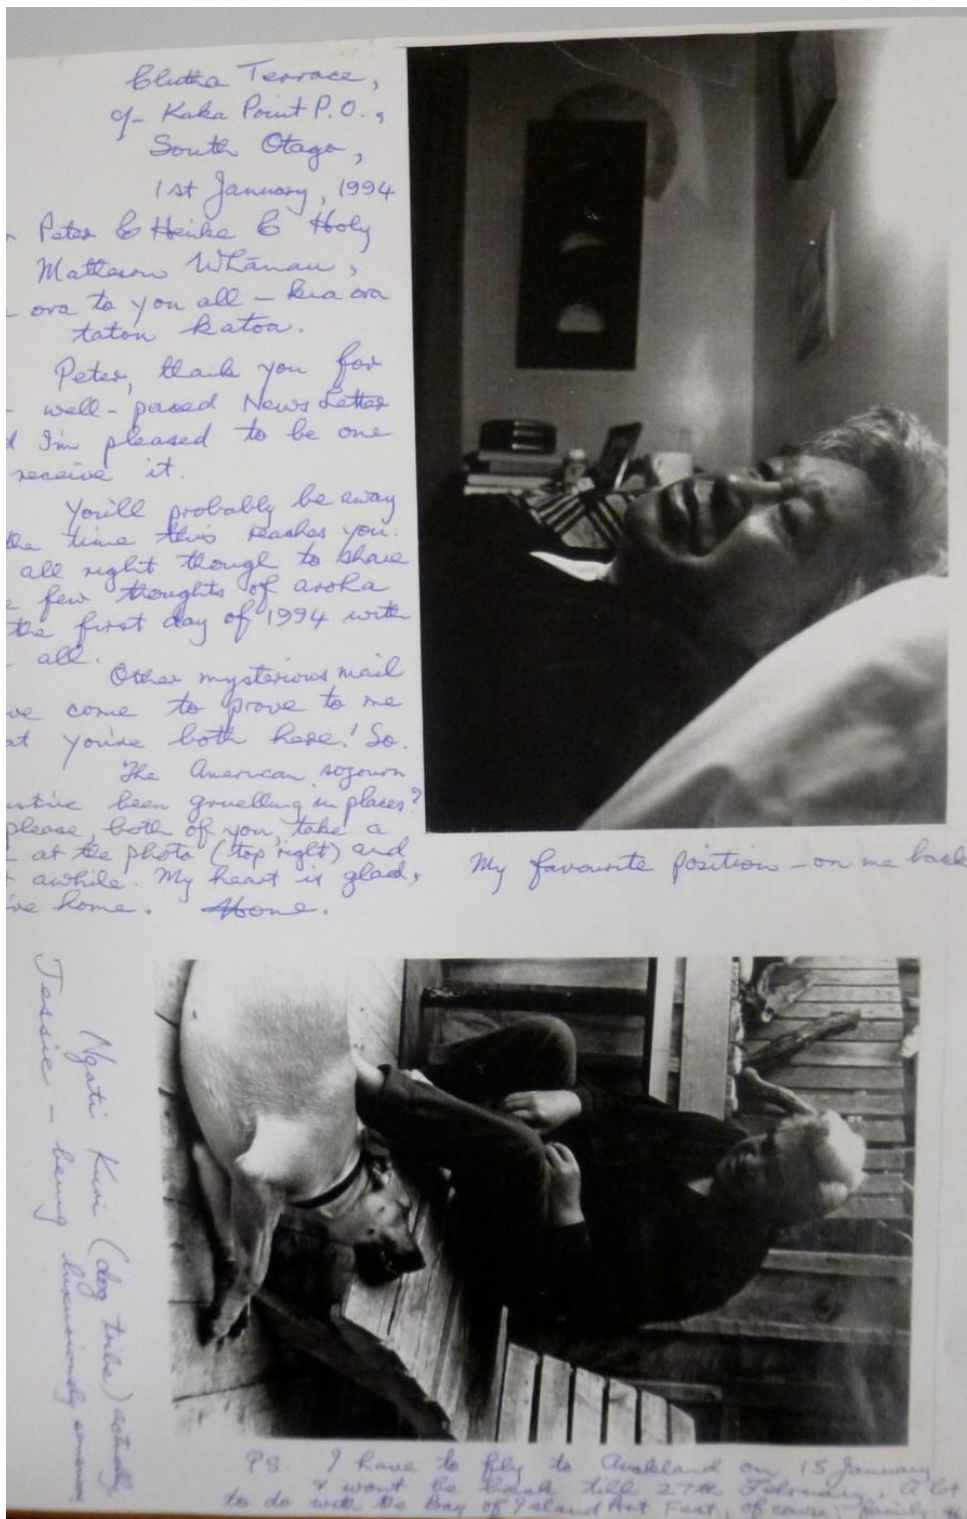 Clutha Terrace,
c/- Kaka Point P.O.,
South Otago,
1st January, 1994
Peter & Heinke & Holy
Matteson Whānau,
ora to you all – kia ora
tatou katoa.
Peter, thank you for
well-paced News Letter
I'm pleased to be one
receive it.
You'll probably be away
the time this reaches you.
all right though to share
few thoughts of aroha
the first day of 1994 with
all.
Other mysterious mail
come to prove to me
you're both here! So.
The American sojourn
been gruelling in places?
please, both of you, take a
at the photo (top right) and
awhile. My heart is glad,
home. Home.
My favourite position – on me back
Ngati Kuri (dog tribe) actually
Tessie – being luxuriously
PS I have to fly to Auckland on 15 January
& wont be back till 27th February. A lot
to do with the Bay of Island Art Fest, of course, family